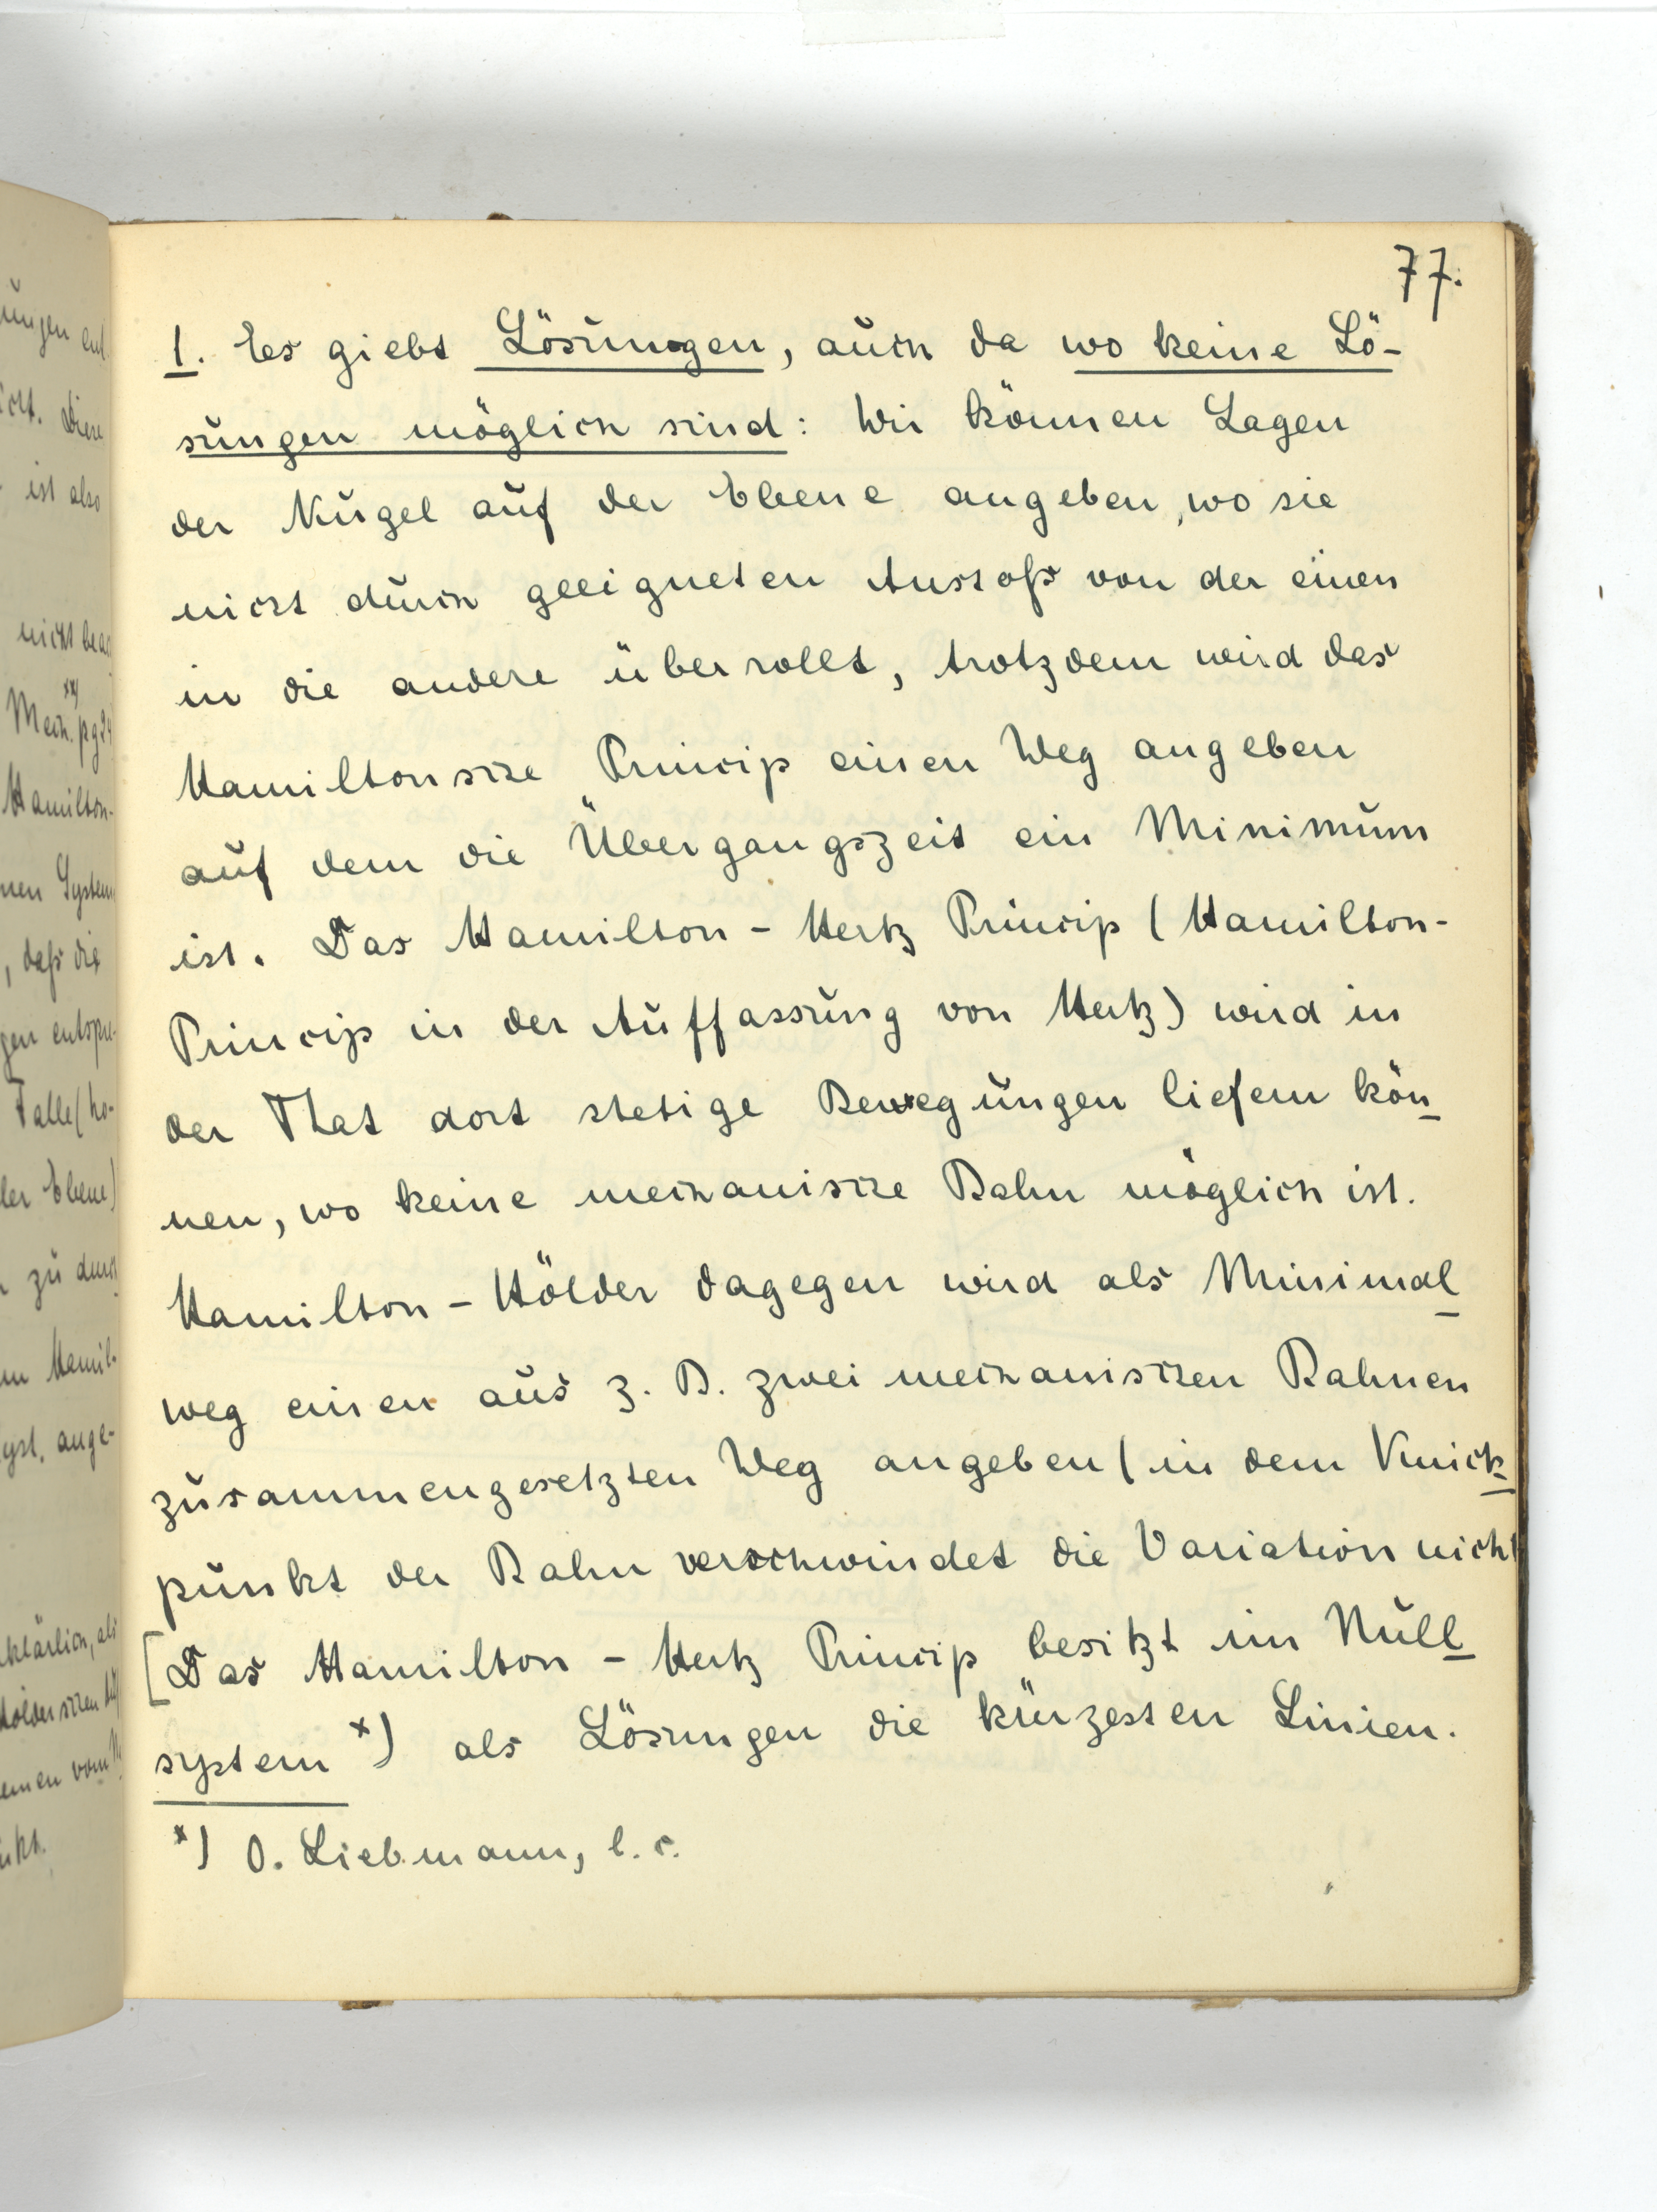 77.
1. Es giebt Lösungen, auch da wo keine Lö-
sungen möglich sind: Wir können Lagen
der Kugel auf der Ebene angeben, wo sie
nicht durch geeigneten Anstoß von der einen
in die andere überrollt, trotzdem wird das
Hamiltonsche Princip einen Weg angeben
auf dem die Übergangszeit ein Minimum
ist. Das Hamilton - Hertz Princip (Hamilton-
Princip in der Auffassung von Hertz) wird in
der That dort stetige Bewegungen liefern kön_
nen, wo keine mechanische Bahn möglich ist.
Hamilton - Hölder dagegen wird als Minimal_
weg einen aus z. B. zwei mechanischen Bahnen
zusammengesetzten Weg angeben (in dem Knick_
punkt der Bahn verschwindet die Variation nicht
[Das Hamilton - Hertz Princip besitzt im Null_
system *) als Lösungen die kürzesten Linien.
*) O. Liebmann, l. c.
ist also
nicht
Mech.
Hamilton-
, daß die
Falle (ho-
der Ebene)
zu durch
Hamil-